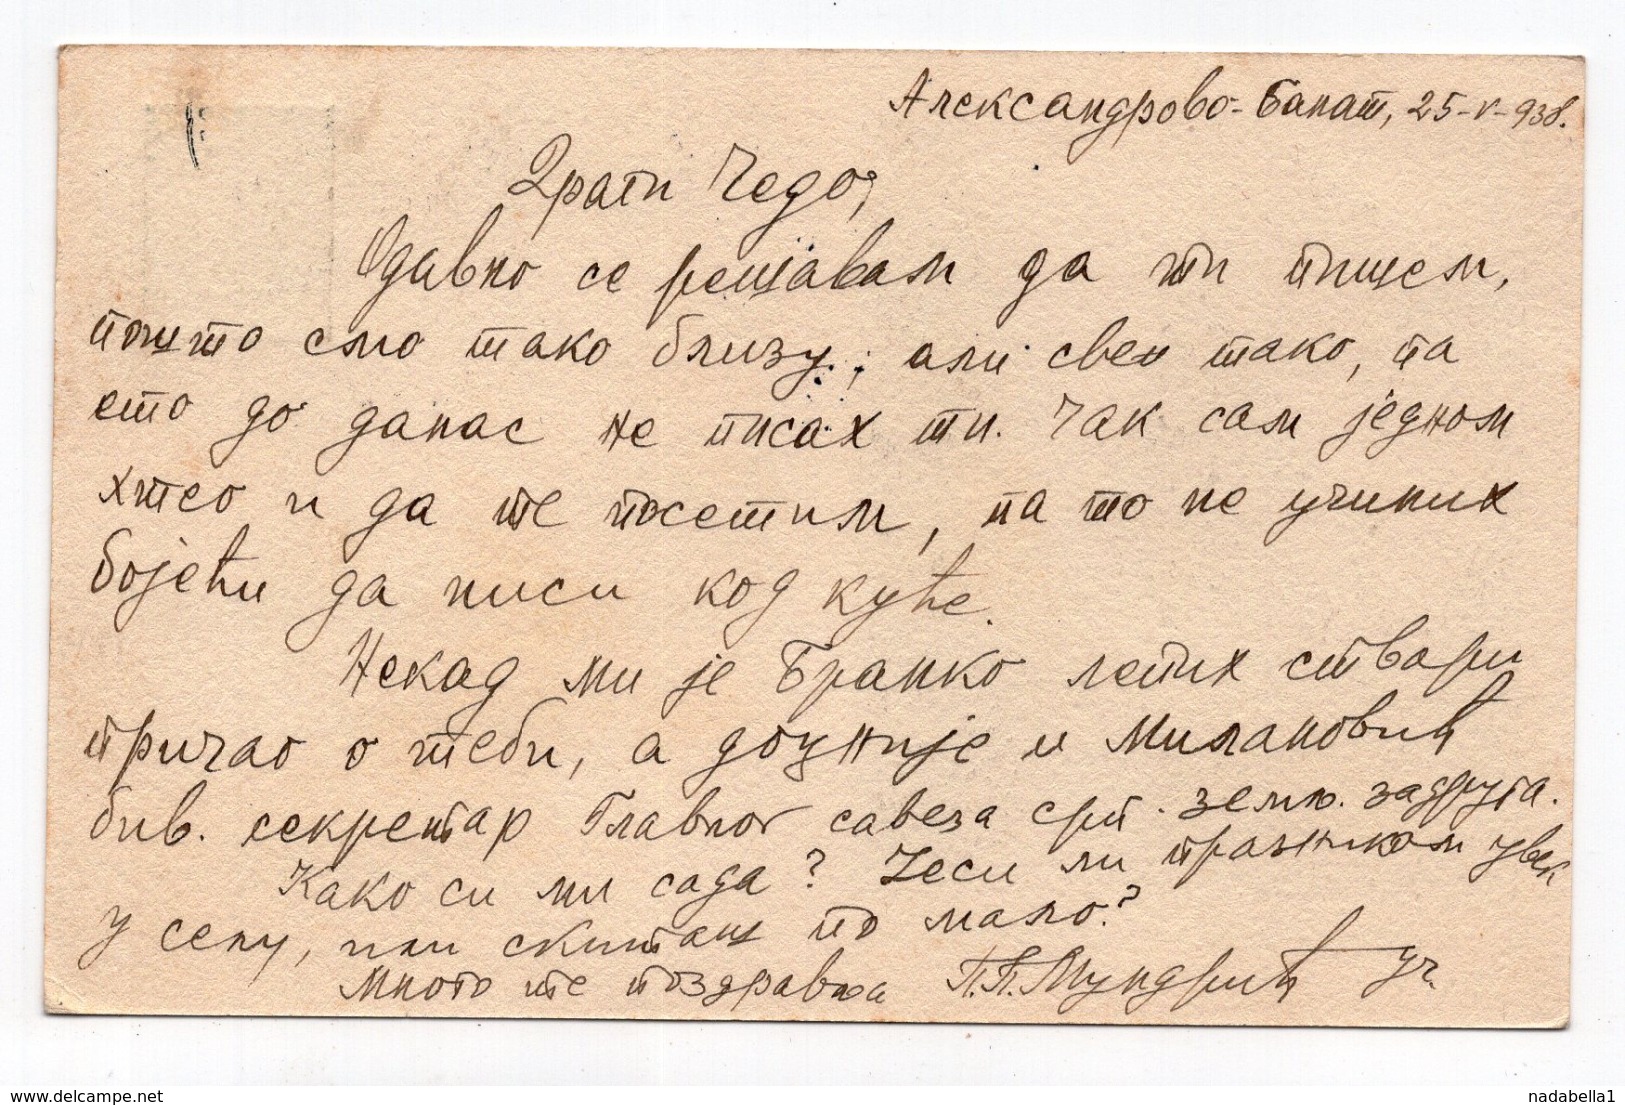 Александрово-Банат, 25-V-938.
Драги Чедо,
Одавно се решавам да ти пишем,
пошто смо тако близу; али свех тако, па
ето до данас не писах ти. Чак сам једном
хтео и да те посетим, па то не учиних
бојећи да ниси код куће.
Некад ми је Бранко лепих ствари
причао о теби, а доцније и Милановић
бив. секретар Главног савеза срп. земљ. задруга.
Како си ми сада? Јеси ли празником увек
у селу, или скиташ по мало?
Много те поздравља П.П.Мундрић уч.
nadabella1